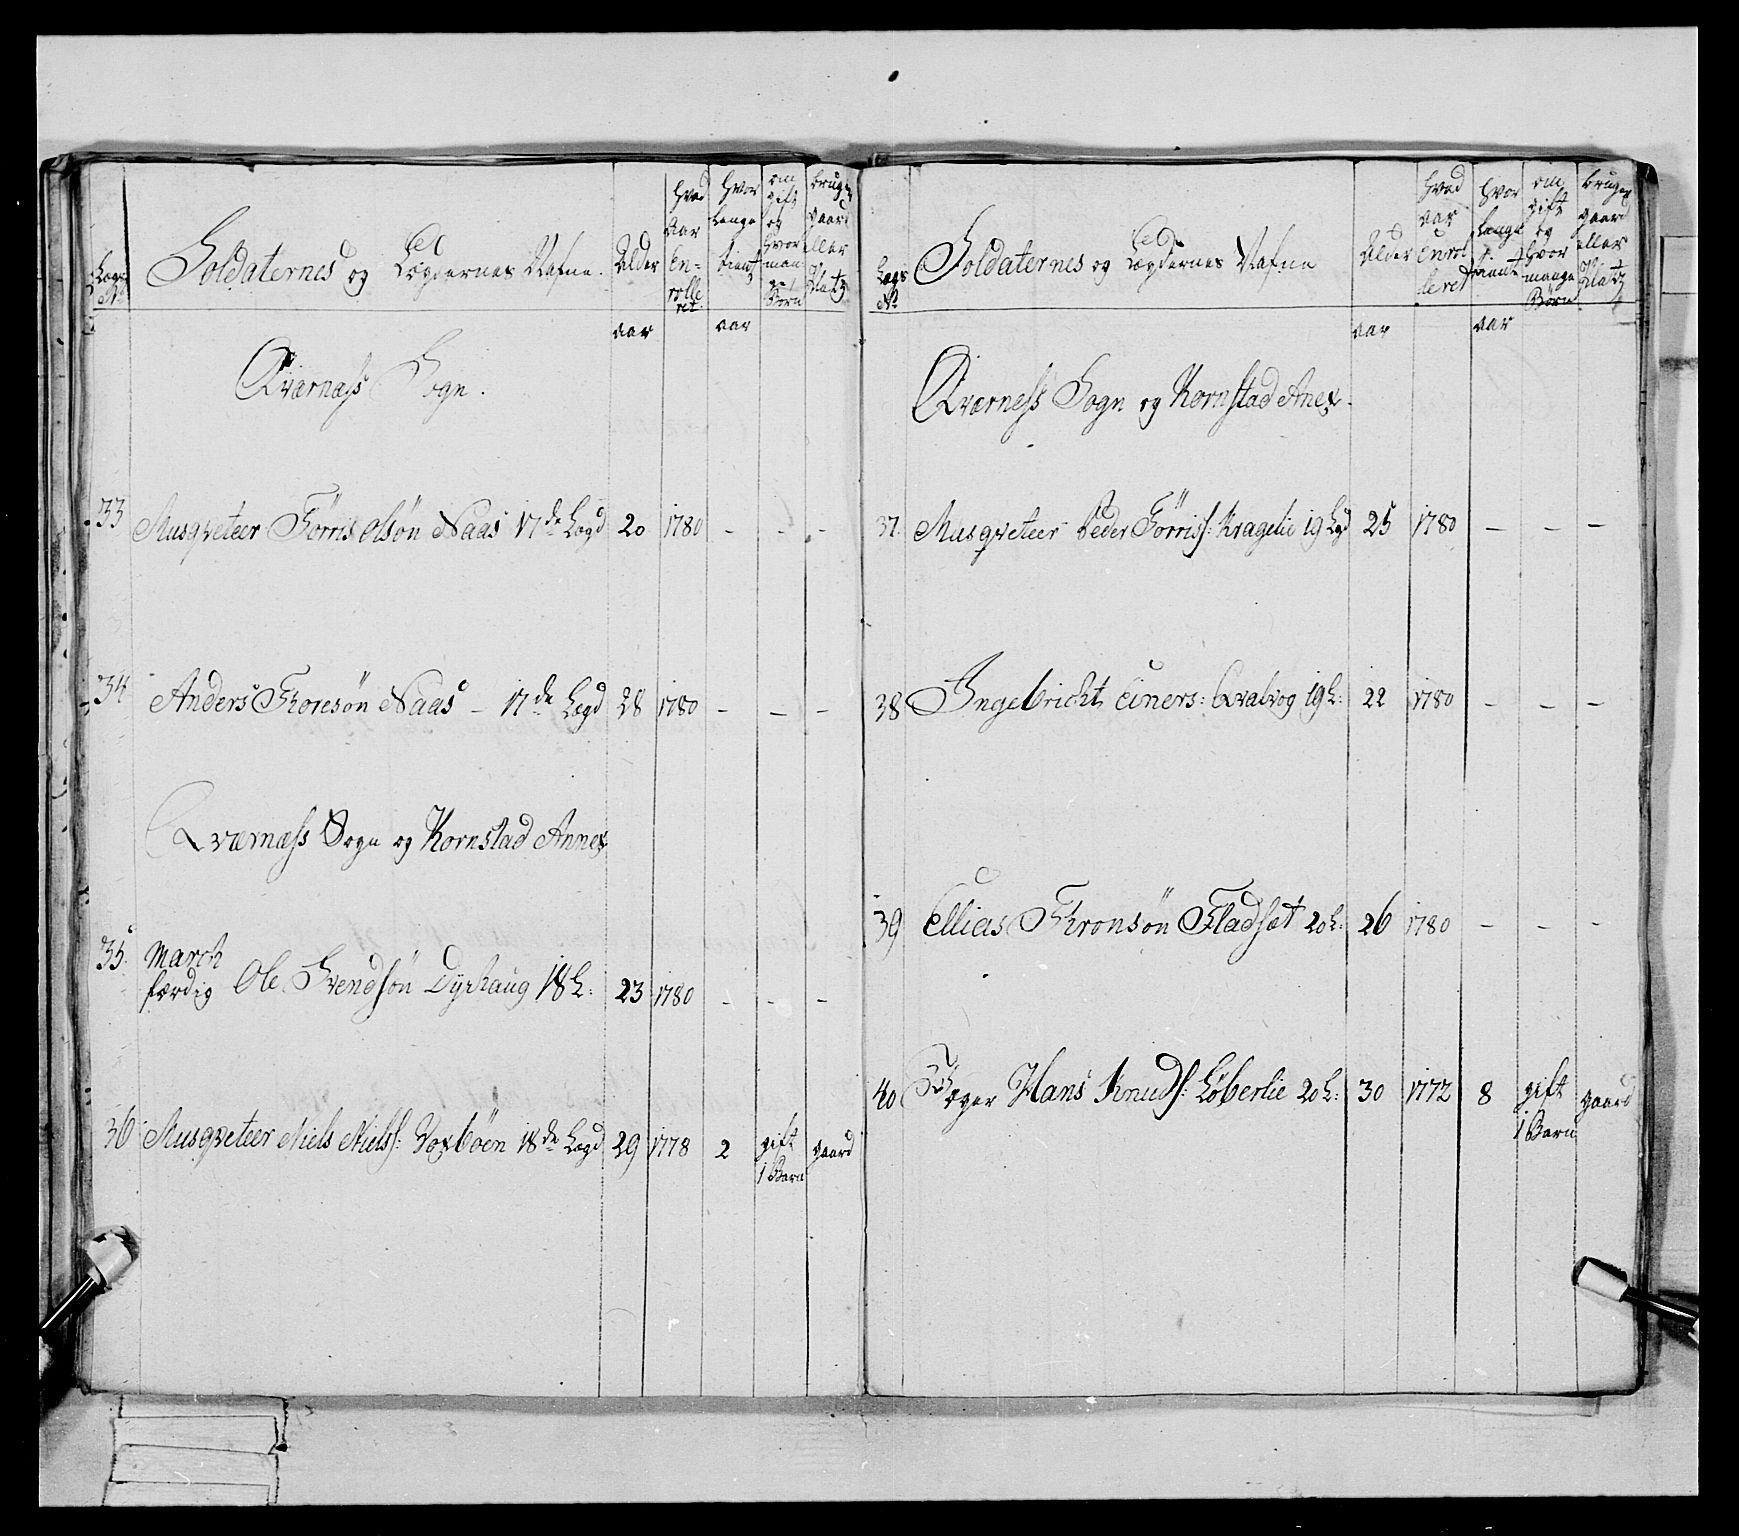 Soldaternes og Lægdernes Nafne. Alder hvad Aar Enrolleret hvor længe tient om gift og hvor mange Børn bruger gaard eller Platz
aar aar
Qværnæss Sogn.
33 Musqveteer Tørris Olsøn Naas 17de Lægd 20 1780 - - -
34 Anders Thoresøn Naas - 17de Lægd 28 1780 - - -
Qværnæss Sogn og Kornstad Annex
35. March færdig Ole Svendsøn Dyrhaug 18 L: 23 1780 - - -
36 Musqveteer Niels Nielss: Voxbøen 18de Lægd 29 1778 2 gift gaard
1 Barn
Lægs No Soldaternes og Lægdernes Nafne Alder hvad aar Enrolleret hvor længe tient om gift og hvor mange Børn bruger gaard eller Platz
aar aar
Qværness Sogn og Kornstad Anex.
37. Musqveteer Peder Tørriss: Kragelie 19 Lgd 25 1780 - - -
38 Ingebricht Einers: Qvalvog 19 L: 22 1780 - - -
39 Ellias Thronsøn Fladsæt 20 L: 26 1780 - - -
40 Jæger Hans Knuds: Løberlie 20 L: 30 1772 8 gift gaard
1 Barn